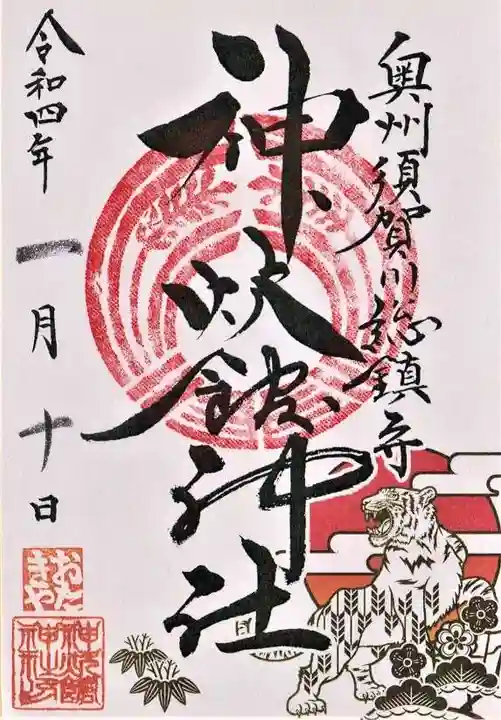 奥州須賀川総鎮守
神炊館神社
令和四年
一月十日
おたきや
神炊館神社